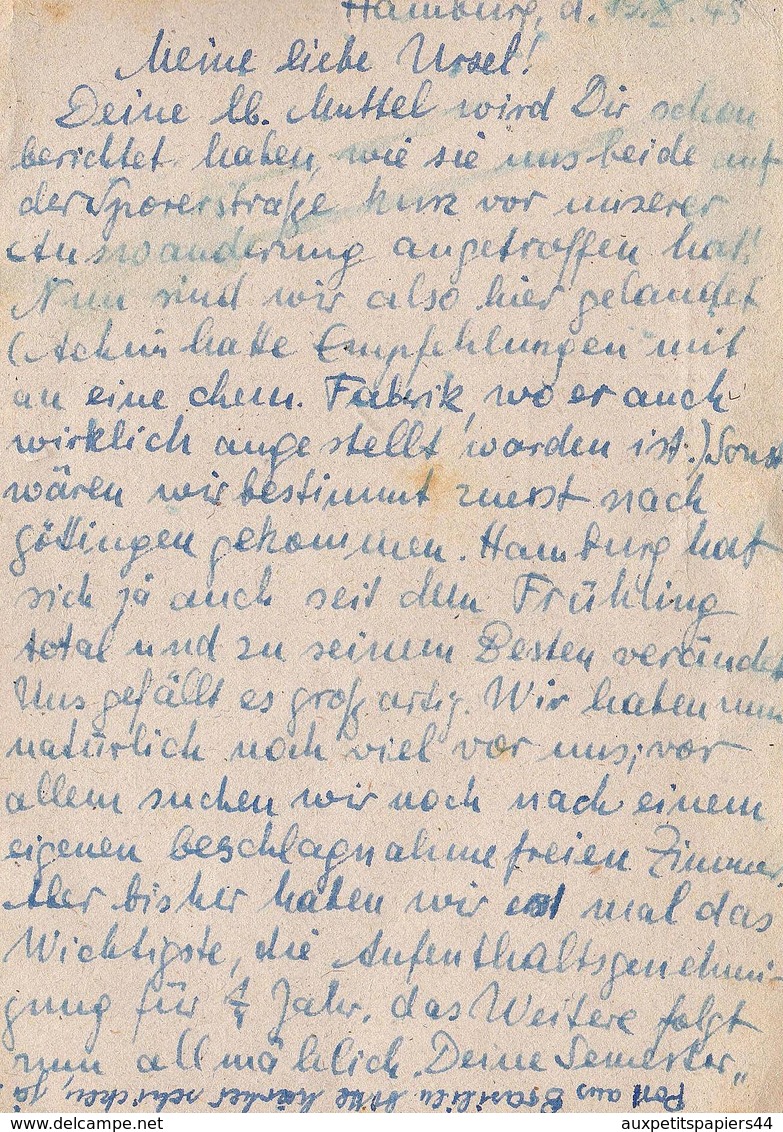 Hamburg, d. 45
Meine liebe Ursel!
Deine lb. Muttel wird Dir schon
berichtet haben, wie sie uns beide auf
der Sporerstraße kurz vor unserer
Auswanderung angetroffen hat!
Nun sind wir also hier gelandet
(Achim hatte Empfehlungen mit
an eine chem. Fabrik, wo er auch
wirklich angestellt worden ist.) Sonst
wären wir bestimmt zuerst nach
Göttingen gekommen. Hamburg hat
sich ja auch seit dem Frühling
total und zu seinem Besten verändert
Uns gefällt es großartig. Wir haben nun
natürlich noch viel vor uns; vor
allem suchen wir noch nach einem
eigenen beschlagnahmefreien Zimmer
Aber bisher haben wir erst mal das
Wichtigste, die Aufenthaltsgenehmi-
gung für 1/4 Jahr, das Weitere folgt
nun allmählich. Deine Semester„
Post aus Brasilien bitte hierher schicken, ja!
auxpetitspapiers44